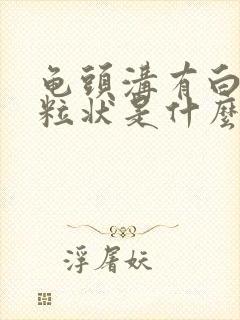 龟頭溝有白
粒状是什麼
浮屠妖